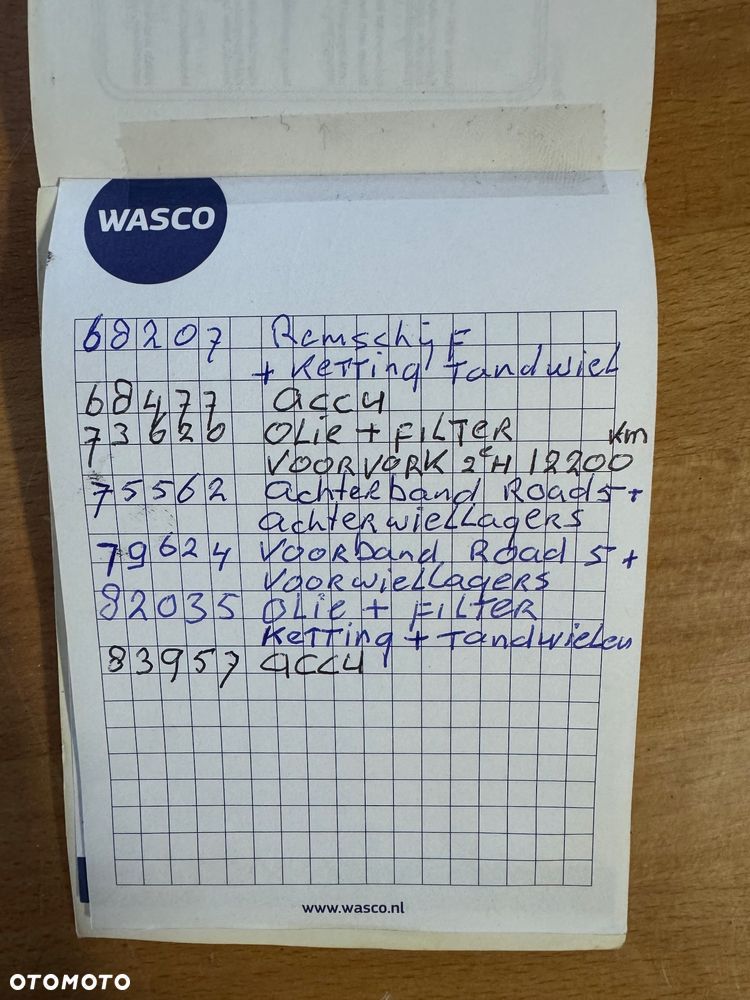 WASCO
68207 Remschijf
+ Ketting Tandwiel
68477 accu
73620 OLIE + FILTER km
VOORVORK 2eH 12200
75562 achterband Road 5 +
achterwiellagers
79624 Voorband Road 5 +
Voorwiellagers
82035 OLIE + FILTER
Ketting + Tandwielen
83957 accu
www.wasco.nl
OTOMOTO